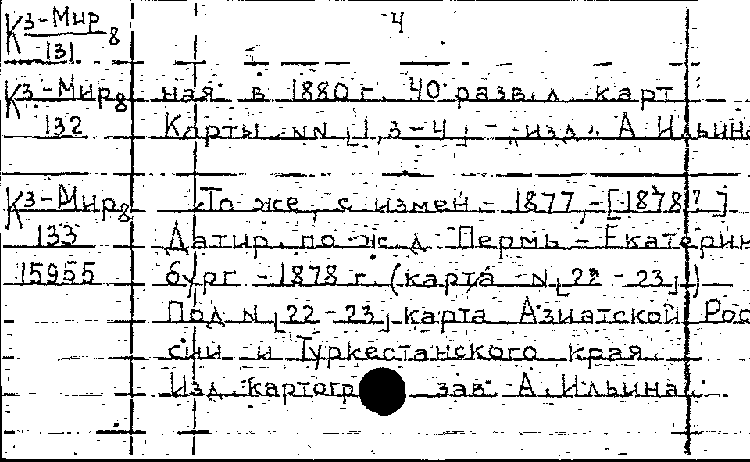 К3-Мир8 4
131
К3-Мир8 ная в 1880 г. 40 разв. л. карт
132 Карты NN [1, 3-4] - изд. А Ильина
К3-Мир8 То же, с измен. - 1877, - [1878?]
133 Датир. по ж. д. Пермь - Екатерин
15955 бург - 1878 г. (карта N [22-23])
Под N [22-23] карта Азиатской Рос
сии и Туркестанского края.
Изд. картогр зав. А. Ильина.